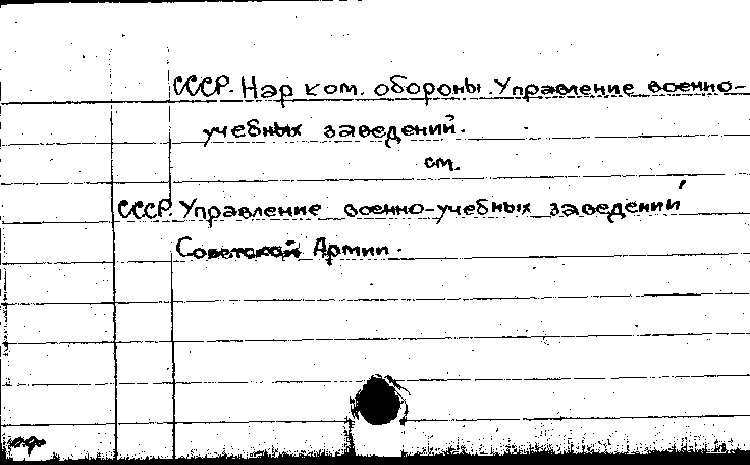 СССР. Нар ком. обороны. Управление военно-
учебных заведений.
см.
СССР. Управление военно-учебных заведений
Советской Армии.